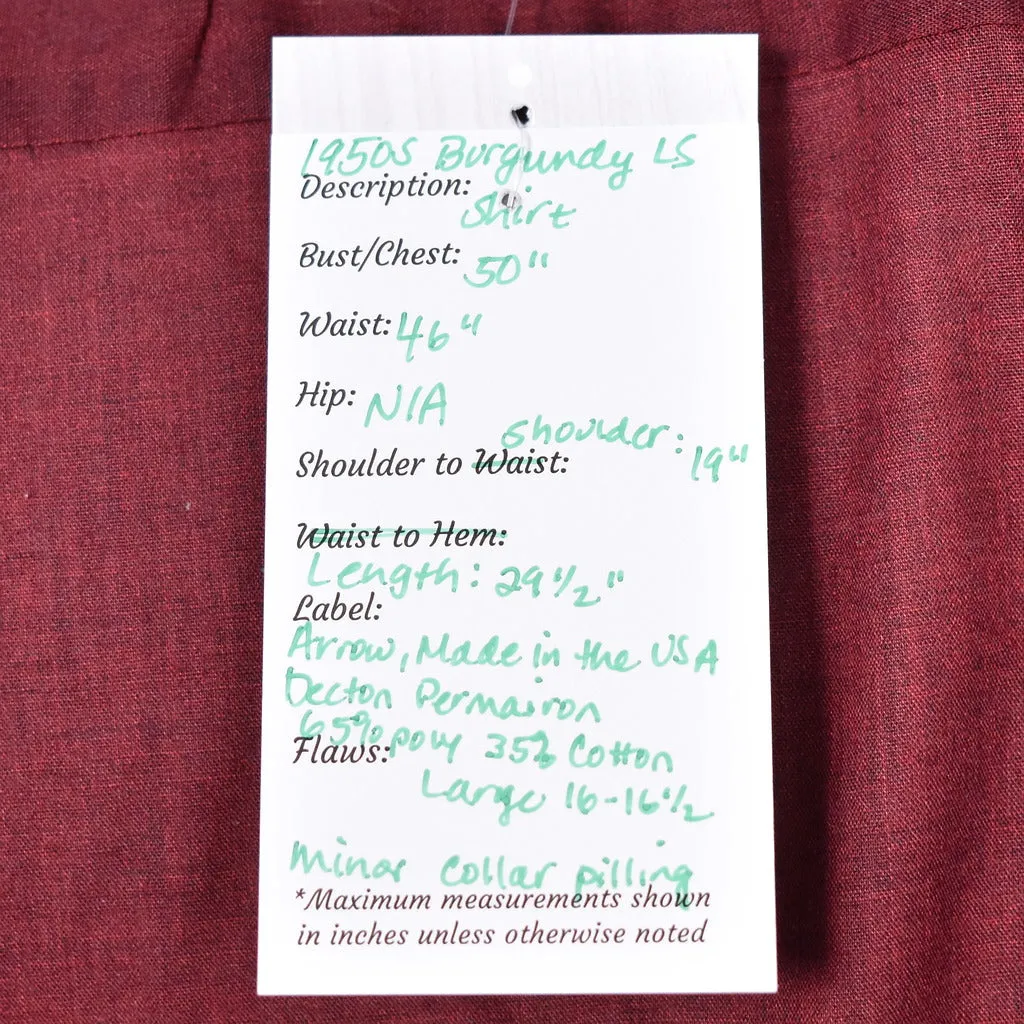 1950s Burgundy LS
Description:
Shirt
Bust/Chest: 50"
Waist: 46"
Hip: N/A
Shoulder:
Shoulder to Waist: 19"
Waist to Hem:
Length: 29 1/2"
Label:
Arrow, Made in the USA
Decton Permairon
65% poly 35% Cotton
Flaws:
Large 16-16 1/2
Minor collar pilling
*Maximum measurements shown
in inches unless otherwise noted